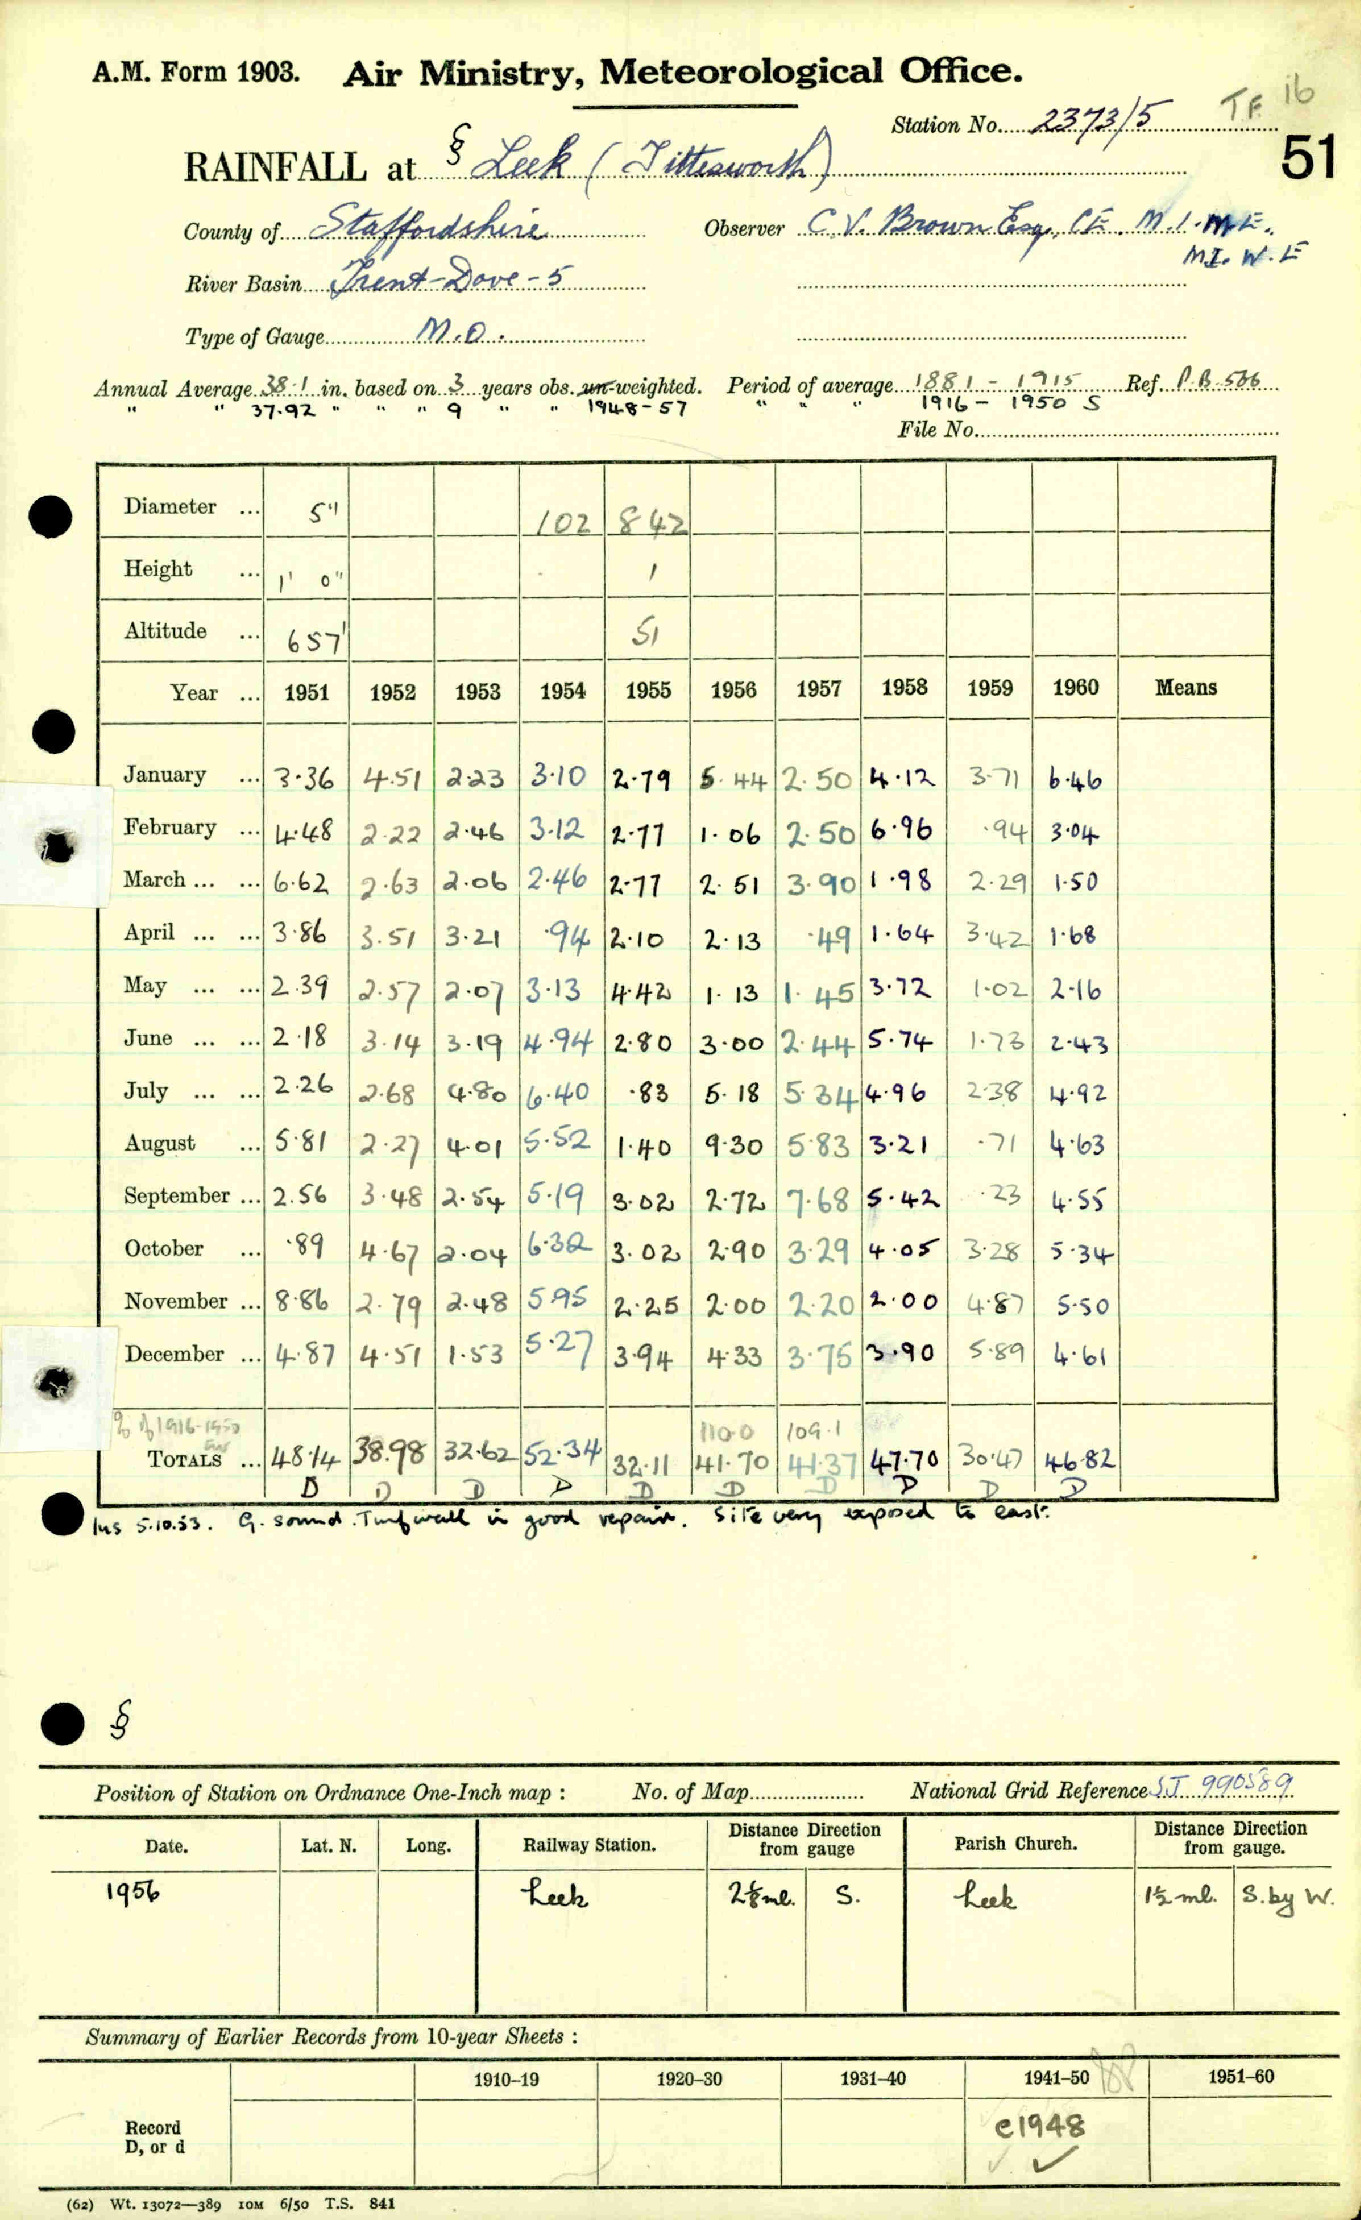 A.M. Form 1903. Air Ministry, Meteorological Office.
TF 16
Station No. 2373/5
51
RAINFALL at § Leek (Tittesworth)
County of Staffordshire Observer C.V. Brown Esq., C.E. M.I.M.E.,
M.I.W.E
River Basin Trent-Dove-5
Type of Gauge M.O.
Annual Average 38.1 in. based on 3 years obs. un-weighted. Period of average 1881 - 1915 Ref. P.B. 586
" " 37.92 " " " 9 " " 1948-57 " " " 1916 - 1950 S
File No.
Diameter ... 5" 102 842
Height ... 1' 0" 1
Altitude ... 657' 51
Year ... 1951 1952 1953 1954 1955 1956 1957 1958 1959 1960 Means
January ... 3.36 4.51 2.23 3.10 2.79 5.44 2.50 4.12 3.71 6.46
February ... 4.48 2.22 2.46 3.12 2.77 1.06 2.50 6.96 .94 3.04
March ... ... 6.62 2.63 2.06 2.46 2.77 2.51 3.90 1.98 2.29 1.50
April ... ... 3.86 3.51 3.21 .94 2.10 2.13 .49 1.64 3.42 1.68
May ... ... 2.39 2.57 2.07 3.13 4.42 1.13 1.45 3.72 1.02 2.16
June ... ... 2.18 3.14 3.19 4.94 2.80 3.00 2.44 5.74 1.73 2.43
July ... ... 2.26 2.68 4.80 6.40 .83 5.18 5.34 4.96 2.38 4.92
August ... 5.81 2.27 4.01 5.52 1.40 9.30 5.83 3.21 .71 4.63
September ... 2.56 3.48 2.54 5.19 3.02 2.72 7.68 5.42 .23 4.55
October ... .89 4.67 2.04 6.32 3.02 2.90 3.29 4.05 3.28 5.34
November ... 8.86 2.79 2.48 5.95 2.25 2.00 2.20 2.00 4.87 5.50
December ... 4.87 4.51 1.53 5.27 3.94 4.33 3.75 3.90 5.89 4.61
% of 1916-1950 110.0 109.1
TOTALS ... 48.14 38.98 32.62 52.34 32.11 41.70 41.37 47.70 30.47 46.82
D D D D D D D D D D
Ins 5.10.53. G. sound. Turf wall in good repair. Site very exposed to east.
§
Position of Station on Ordnance One-Inch map : No. of Map National Grid Reference SJ 990589
Date. Lat. N. Long. Railway Station. Distance Direction from gauge Parish Church. Distance Direction from gauge.
1956 Leek 2⅛ ml. S. Leek 1½ ml. S. by W.
Summary of Earlier Records from 10-year Sheets :
1910–19 1920–30 1931–40 1941–50 1951–60
Record
D, or d
c1948
(62) Wt. 13072—389 10M 6/50 T.S. 841